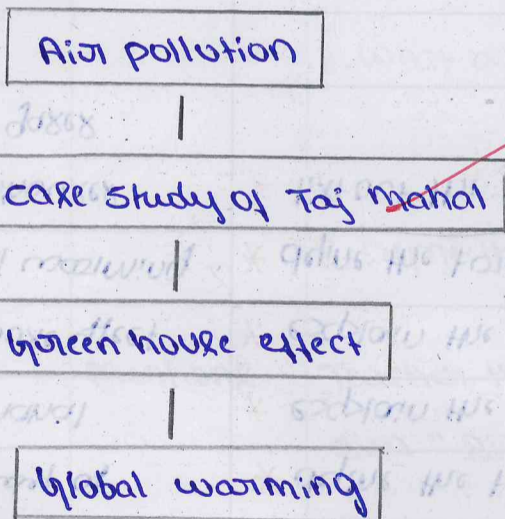 Air pollution
case study of Taj Mahal
Green house effect
Global warming